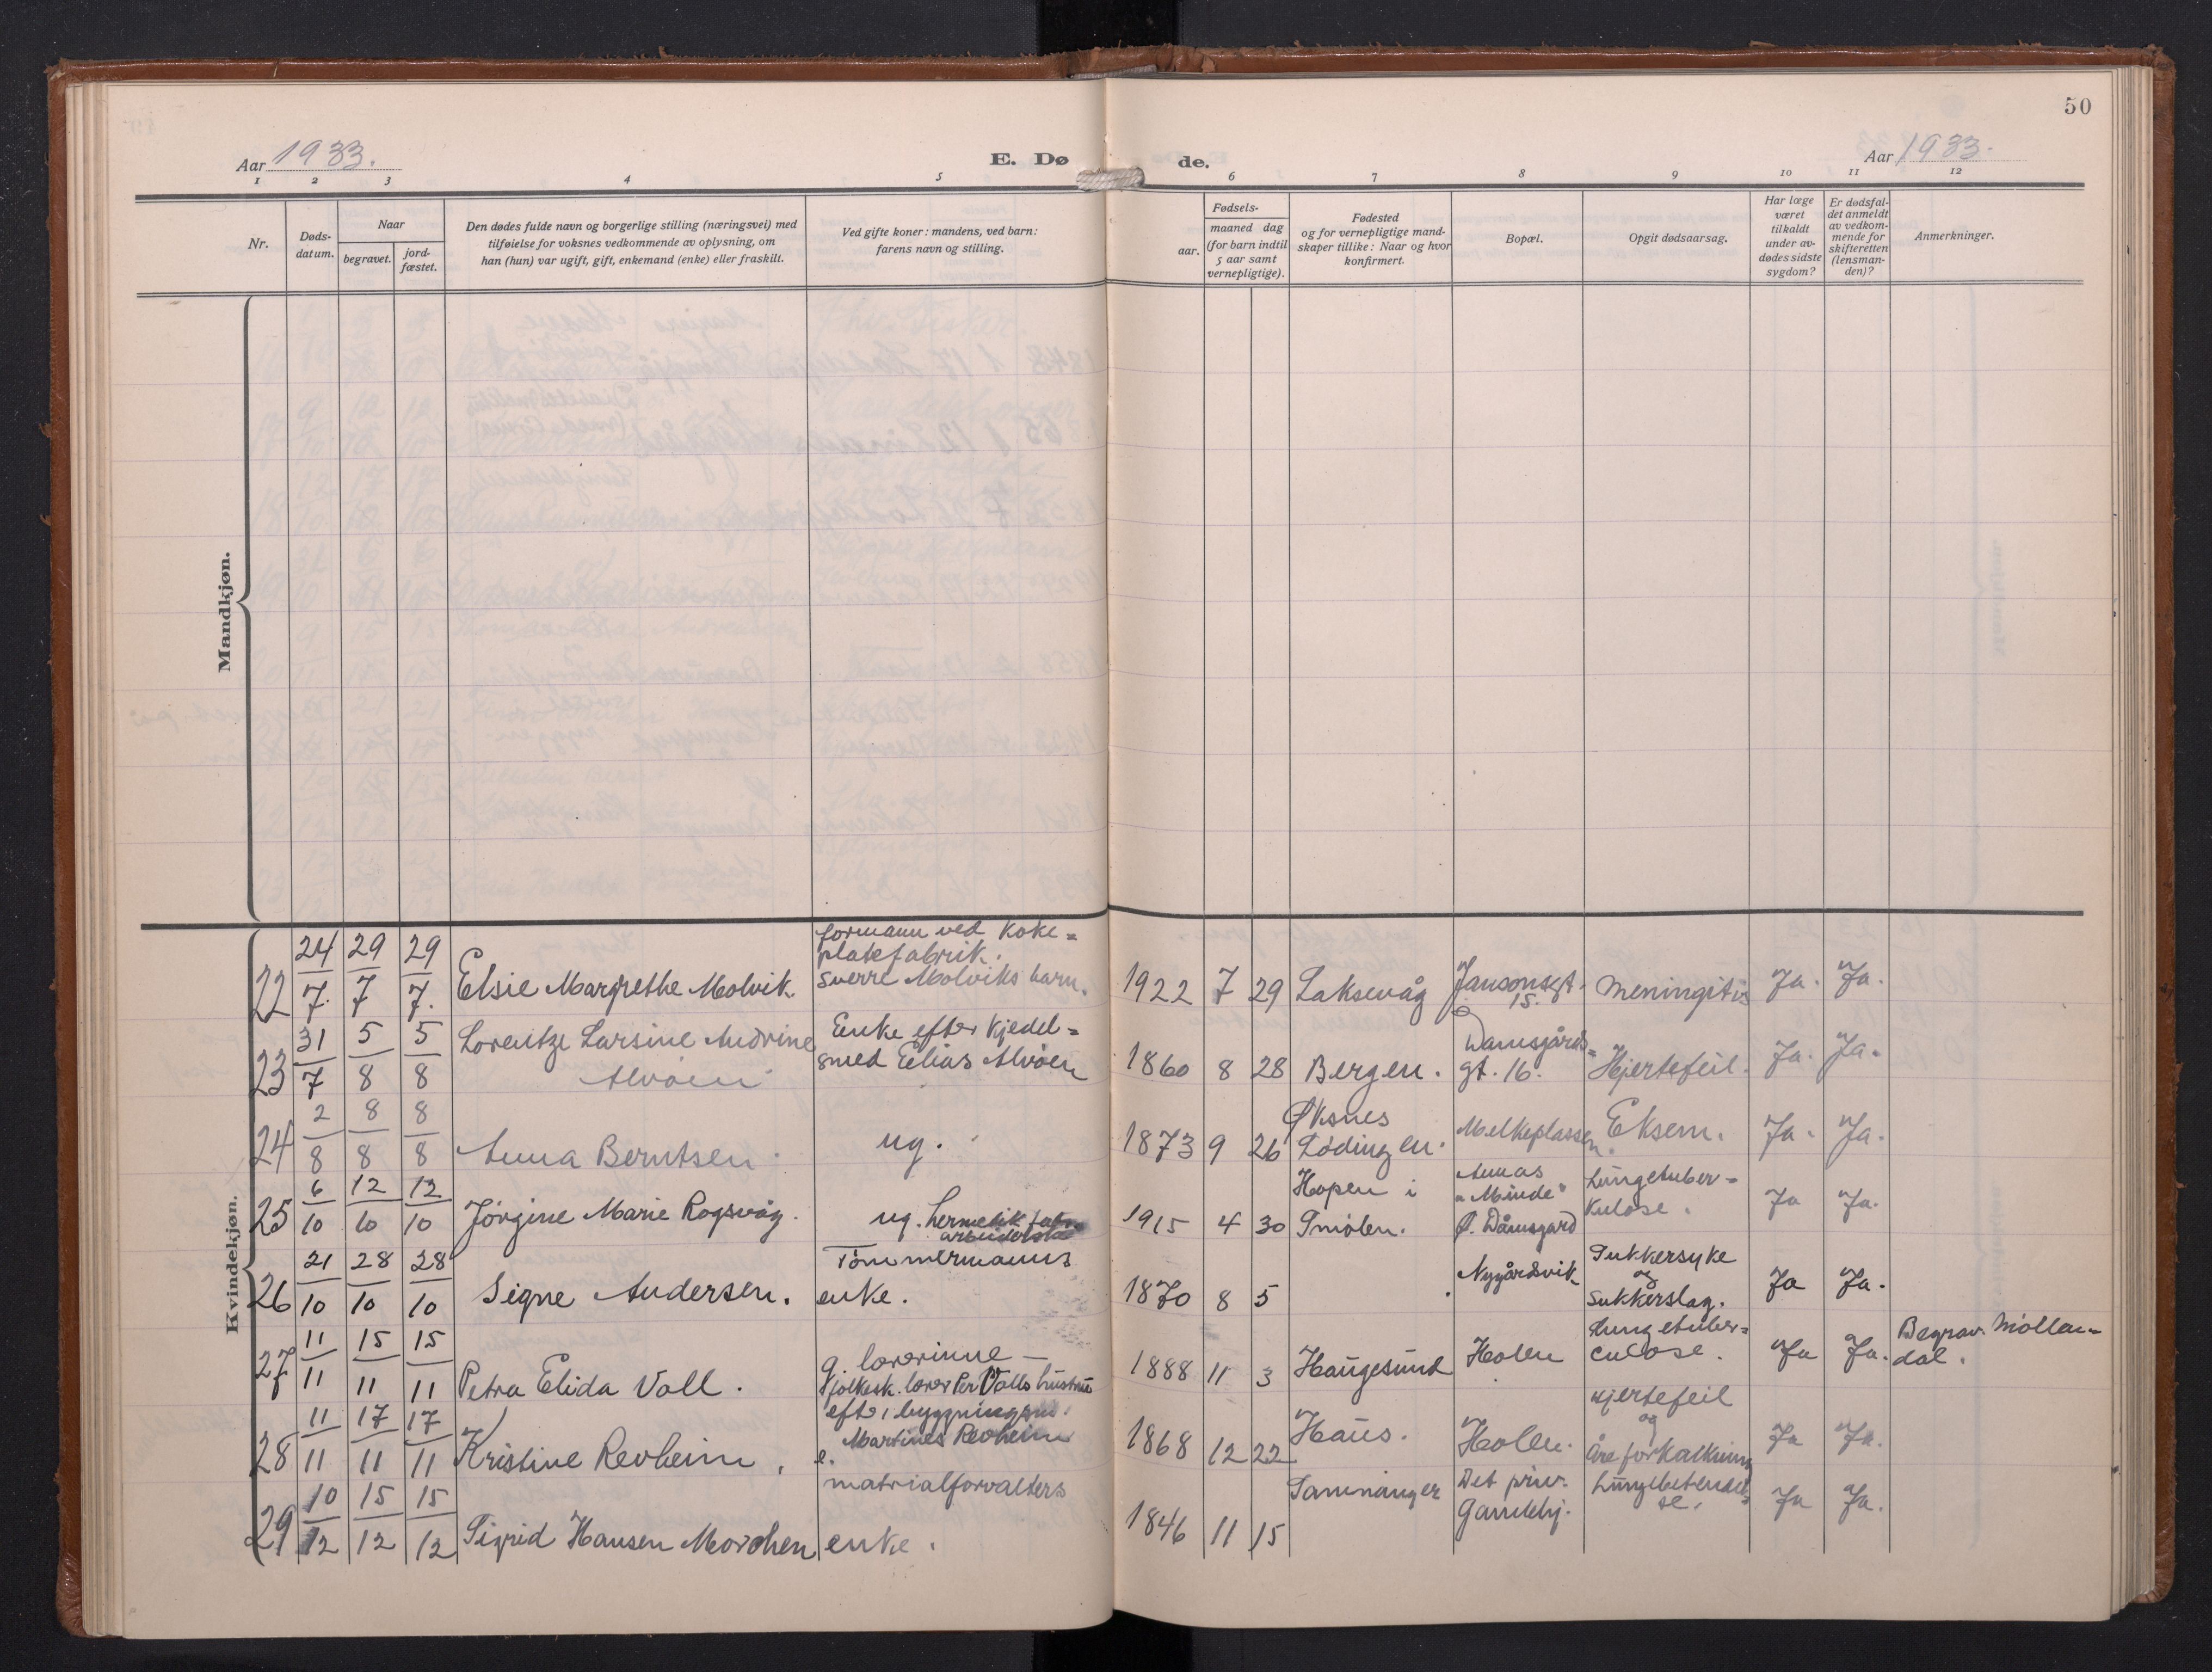 50
Aar 1933.
E. Dø de.
Aar 1933.
1 2 3 4 5 6 7 8 9 10 11 12
Nr.
Døds-
datum.
Naar
begravet.
jord-
fæstet.
Den dødes fulde navn og borgerlige stilling (næringsvei) med
tilføielse for voksnes vedkommende av oplysning, om
han (hun) var ugift, gift, enkemand (enke) eller fraskilt.
Ved gifte koner: mandens, ved barn:
farens navn og stilling.
Fødsels-
aar.
maaned dag
(for barn indtil
5 aar samt
vernepligtige).
Fødested
og for vernepligtige mand-
skaper tillike: Naar og hvor
konfirmert.
Bopæl.
Opgit dødsaarsag.
Har læge
været
tilkaldt
under av-
dødes sidste
sygdom?
Er dødsfal-
det anmeldt
av vedkom-
mende for
skifteretten
(lensman-
den)?
Anmerkninger.
Mandkjøn.
Kvindekjøn.
22 24/7. 29/7 29/7. Elsie Margrethe Molvik
formann ved Koke=
platefabrik.
Sverre Molviks barn.
1922 7 29 Laksevåg
Jansonsgt.
15.
Meningitis Ja. Ja.
23 31/7 5/8 5/8 Lorentze Larsine Andrine
Alvøen
Enke efter Kjedel=
smed Elias Alvøen
1860 8 28 Bergen.
Damsgårds=
gt. 16.
Hjertefeil. Ja. Ja.
24 2/8 8/8 8/8 Anna Berntsen ug.
1873 9 26
Øksnes
Lødingen.
Melkeplassen. Eksem. Ja. Ja.
25 6/10 12/10 12/10 Jørgine Marie Rogsvåg. ug. hermetikfabr.
arbeiderske
1915 4 30
Hopen i
Smølen.
Annas
"Minde"
Ø. Damsgård
Lungetuber=
kulose.
Ja Ja.
26 21/10 28/10 28/10 Signe Andersen.
Tømmermanns
enke.
1870 8 5
Nygårdsvik
Sukkersyke
og
Sukkerslag.
Ja Ja.
27 11/11 15/11 15/11 Petra Elida Vall.
g. lærerinne —
folkesk. lærer Per Valls hustru
1888 11 3 Haugesund Holen
Lungetuber=
culose.
Ja Ja.
Begrav. Møllen=
dal.
28 11/11 17/11 17/11 Kristine Revheim.
e. efter bygningsm.
Martines Revheim
1868 12 22 Haus. Holen.
Hjertefeil
og
Åreforkalkning
Ja Ja.
29 10/12 15/12 15/12 Sigrid Hansen Morchen
matrialforvalters
enke.
1846 11 15 Samnanger
Det priv.
Gamlehj.
Lungebetendel=
se.
Ja Ja.